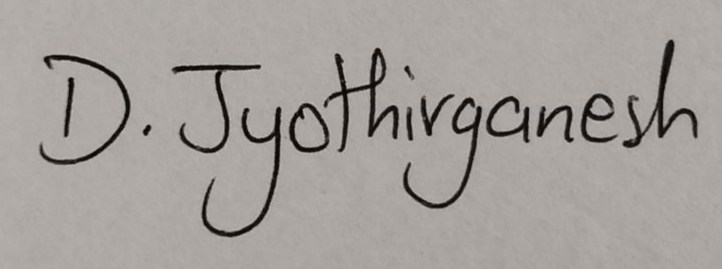 D. Jyothirganesh